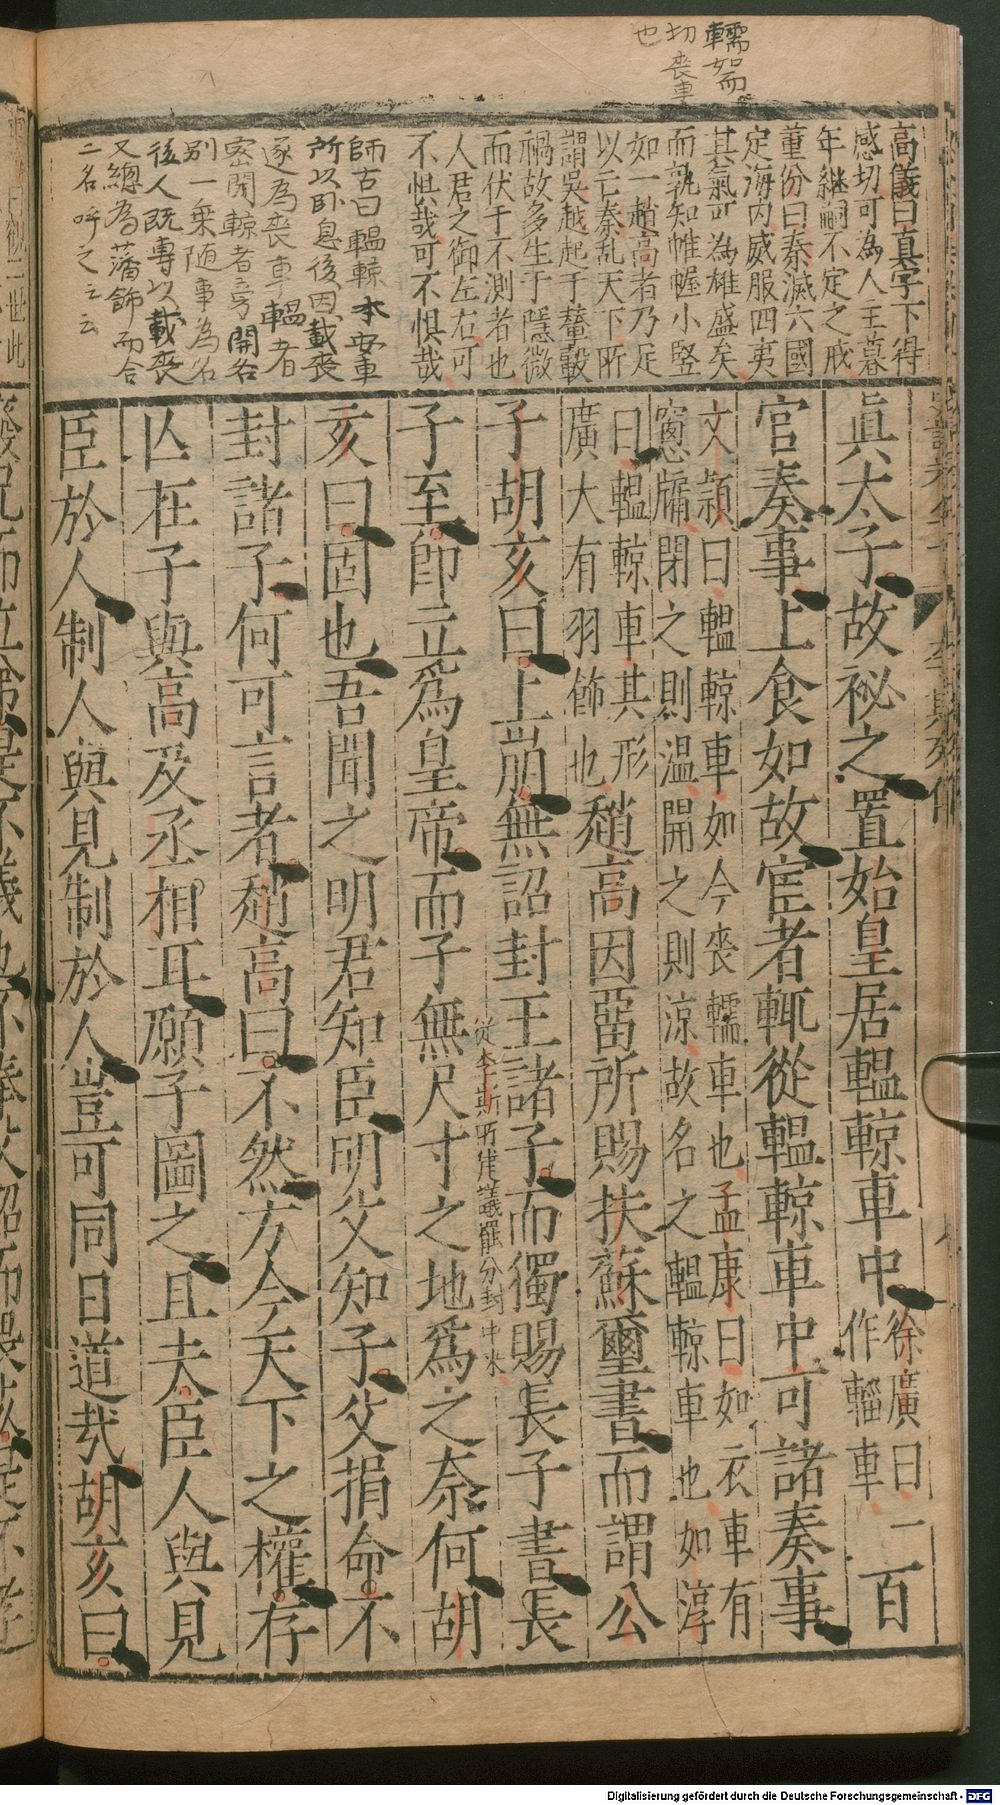 轜如而
切喪車
也
高儀曰真字下得
感切可為人主暮
年継嗣不定之戒
董份曰秦滅六國
定海内威服四夷
其氣可為雄盛矣
而孰知帷幄小竪
如一趙高者乃足
以亡秦乱天下所
謂吳越起于輦轂
禍故多生于隱微
而伏于不測者也
人君之御左右可
不惧哉可不惧哉
師古曰轀輬本安車
所以卧息後因載喪
遂為喪車轀者
密閉輬者旁開各
別一乗随事為名
後人既專以載喪
又總為藩飾而合
二名呼之云
眞太子故祕之置始皇居轀輬車中
徐廣曰一
作輜車
百
官奏事上食如故宦者輒從轀輬車中可諸奏事
文頴曰轀輬車如今喪轜車也孟康曰如衣車有
窻牖閉之則温開之則涼故名之轀輬車也如淳
曰轀輬車其形
廣大有羽飾也
趙高因留所賜扶蘇璽書而謂公
子胡亥曰上崩無詔封王諸子而獨賜長子書長
從李斯所建議罷分封中来
子至卽立爲皇帝而子無尺寸之地爲之奈何胡
亥曰固也吾聞之明君知臣明父知子父捐命不
封諸子何可言者趙高曰不然方今天下之權存
亾在子與高及丞相耳願子圖之且夫臣人與見
臣於人制人與見制於人豈可同日道哉胡亥曰
Digitalisierung gefördert durch die Deutsche Forschungsgemeinschaft - DFG